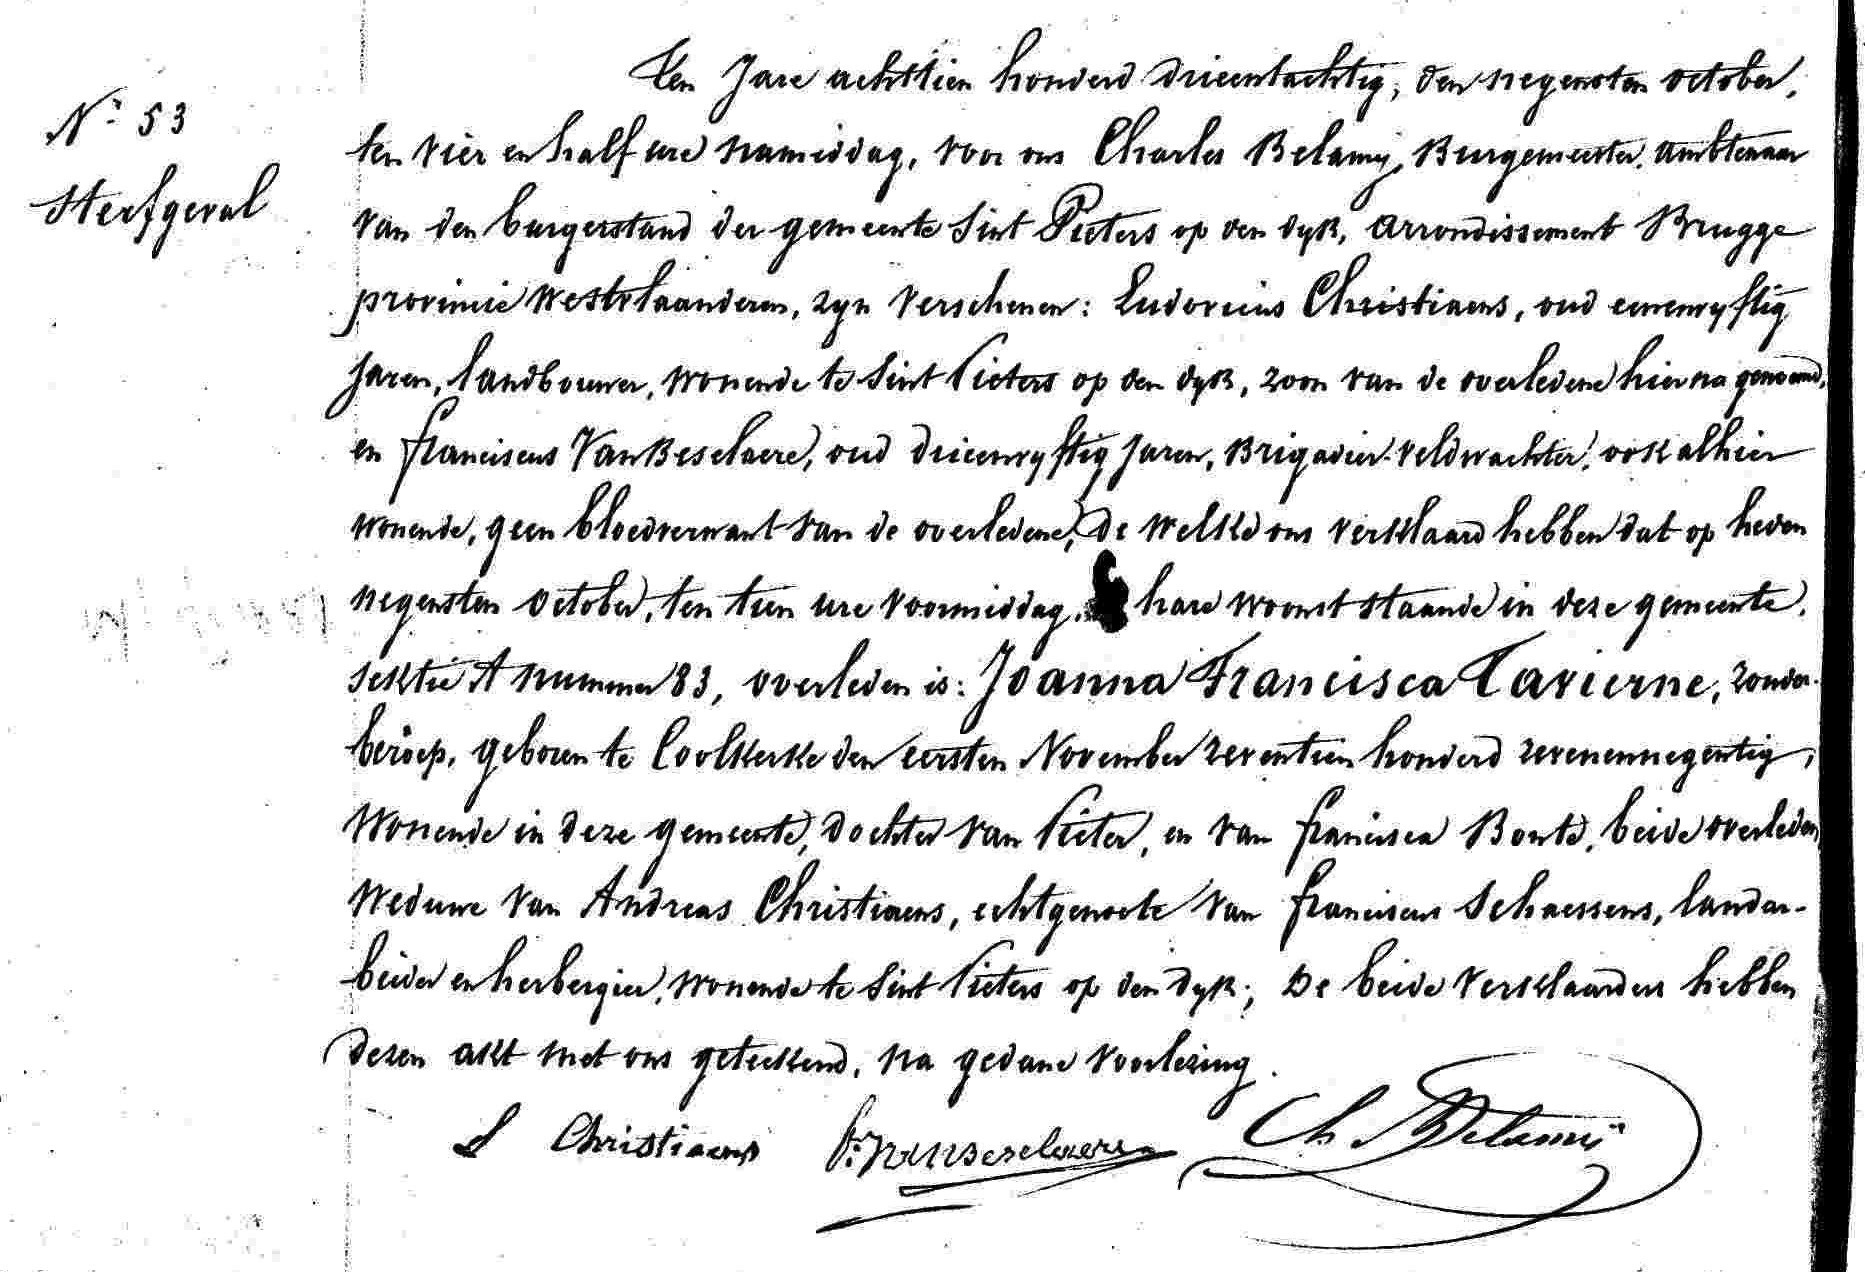 Ten Jare achttien honderd drieentachtig, den negensten october,
N.º 53
ten vier en half ure namiddag, voor ons Charles Belamy, Burgemeester, Ambtenaar
Sterfgeval
van den burgerstand der gemeente Sint Pieters op den dyk, arrondissement Brugge
provincie Westvlaanderen, zyn verschenen: Ludovicus Christiaens, oud eenenvyftig
jaren, landbouwer, wonende te Sint Pieters op den dyk, zoon van de overledene hierna genoemd,
en franciscus VanBeselaere, oud drieenvyftig jaren, Brigadier-veldwachter, ook alhier
wonende, geen bloedverwant van de overledene, de welke ons verklaard hebben dat op heden
negensten october, ten tien ure voormiddag, hare woonst staande in deze gemeente,
sektie A nummer 83, overleden is: Joanna Francisca Tavierne, zonder-
beroep, geboren te Coolkerke den eersten November zeventien honderd zevenennegentig,
wonende in deze gemeente, dochter van Pieter, en van francisca Bonte, beide overleden,
weduwe van Andreas Christiaens, echtgenoote van franciscus Schaessens, landar-
beider en herbergier, wonende te Sint Pieters op den dyk; De beide verklaarders hebben
dezen akt met ons geteekend, na gedane voorlezing.
L Christiaens fr. vanbeselaere Ch Belamy